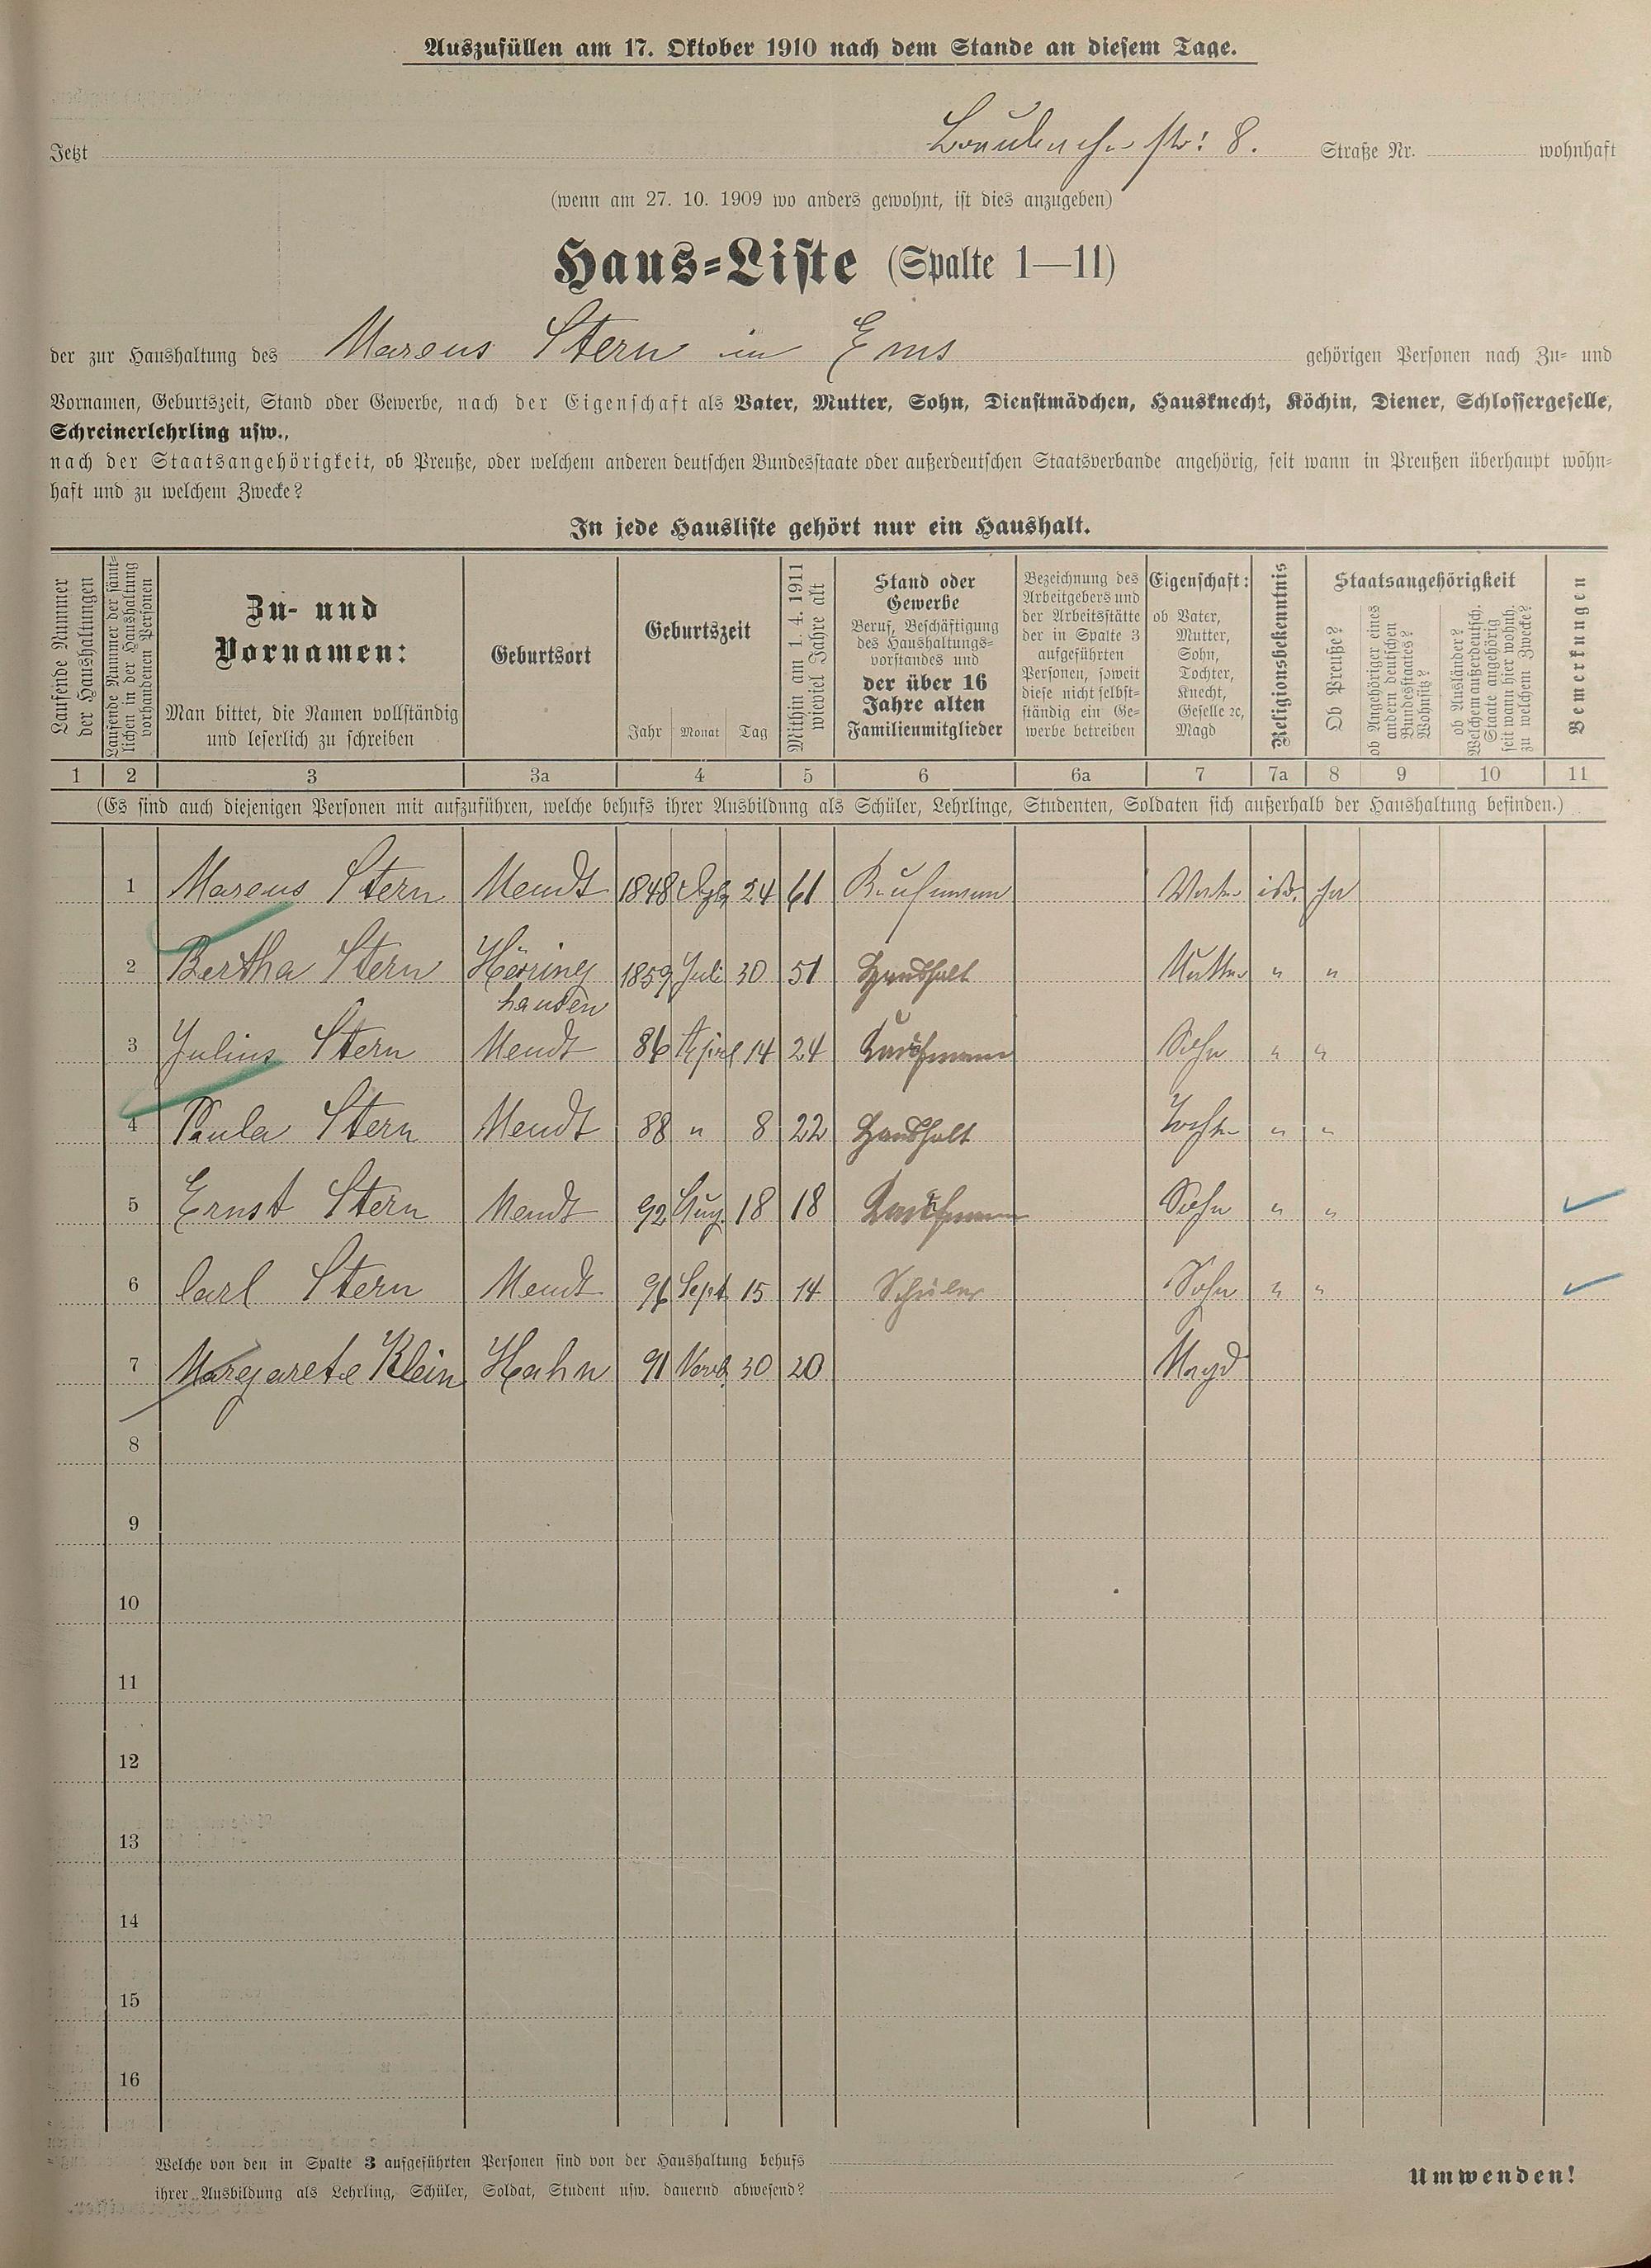 Auszufüllen am 17. Oktober 1910 nach dem Stande an diesem Tage.
Jetzt Braubacher str: 8. Straße Nr. wohnhaft
(wenn am 27. 10. 1909 wo anders gewohnt, ist dies anzugeben)
Haus-Liste (Spalte 1—11)
der zur Haushaltung des Marcus Stern in Ems gehörigen Personen nach Zu- und
Vornamen, Geburtszeit, Stand oder Gewerbe, nach der Eigenschaft als Vater, Mutter, Sohn, Dienstmädchen, Hausknecht, Köchin, Diener, Schlossergeselle,
Schreinerlehrling usw.,
nach der Staatsangehörigkeit, ob Preuße, oder welchem anderen deutschen Bundesstaate oder außerdeutschen Staatsverbande angehörig, seit wann in Preußen überhaupt wohn-
haft und zu welchem Zwecke?
In jede Hausliste gehört nur ein Haushalt.
Laufende Nummer
der Haushaltungen
Laufende Nummer der sämt-
lichen in der Haushaltung
vorhandenen Personen
Zu- und
Vornamen:
Man bittet, die Namen vollständig
und leserlich zu schreiben
Geburtsort
Geburtszeit
Jahr Monat Tag
Mithin am 1. 4. 1911
wieviel Jahre alt
Stand oder
Gewerbe
Beruf, Beschäftigung
des Haushaltungs-
vorstandes und
der über 16
Jahre alten
Familienmitglieder
Bezeichnung des
Arbeitgebers und
der Arbeitsstätte
der in Spalte 3
aufgeführten
Personen, soweit
diese nicht selbst-
ständig ein Ge-
werbe betreiben
Eigenschaft:
ob Vater,
Mutter,
Sohn,
Tochter,
Knecht,
Geselle ꝛc,
Magd
Religionsbekenntnis
Staatsangehörigkeit
Ob Preuße?
ob Angehöriger eines
andern deutschen
Bundesstaates?
Wohnsitz?
ob Ausländer?
Welchem außerdeutsch.
Staate angehörig
seit wann hier wohnh.
zu welchem Zwecke?
Bemerkungen
1 2 3 3a 4 5 6 6a 7 7a 8 9 10 11
(Es sind auch diejenigen Personen mit aufzuführen, welche behufs ihrer Ausbildung als Schüler, Lehrlinge, Studenten, Soldaten sich außerhalb der Haushaltung befinden.)
1 Marcus Stern Mendt 1848 24 61 Kaufmann Vater isr. ja
2 Bertha Stern Höring 1859 Juli 30 51 Haushalt Mutter " "
hausen
3 Julius Stern Mendt 86 April 14 24 Kaufmann Sohn " "
4 Paula Stern Mendt 88 " 8 22 Haushalt Tochter " "
5 Ernst Stern Mendt 92 Aug. 18 18 Kaufmann Sohn " "
6 Carl Stern Mendt 96 Sept. 15 14 Schüler Sohn " "
7 Margarete Klein Hahn 91 Novb. 30 20 Magd
8
9
10
11
12
13
14
15
16
Welche von den in Spalte 3 aufgeführten Personen sind von der Haushaltung behufs
ihrer Ausbildung als Lehrling, Schüler, Soldat, Student usw. dauernd abwesend?
Umwenden!